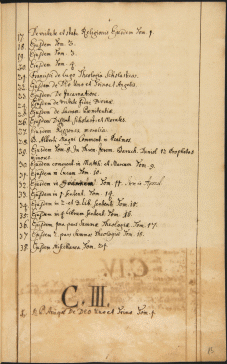 17 De virtute et stat. Religionis Ejusdem Tom. 1.
18. Ejusdem Tom. 2.
19. Ejusdem Tom. 3.
20. Ejusdem Tom. 4.
21. Francisci de Lugo Theologia Scholastica.
22. Ejusdem de Deo Uno et Trino et Angelis.
23. Ejusdem de Incarnatione.
24. Ejusdem de virtute fidei Divinæ
25. Ejusdem de Sacram. Penitentiæ.
26. Ejusdem Disput. Scholast. et Morales.
27. Ejusdem Responsa moralia.
28. B. Alberti Magni Comment. in Psalmos.
29. Ejusdem Tom. 8. In Thren. Jerem. Baruch. Daniel. 12 Prophetas minores.
30. Ejusdem comment. in Matth. et Marcum Tom. 9.
31 Ejusdem in Lucam Tom. 10.
32 Ejusdem in Tom. 11.
33 Ejusdem in 1. Sentent. Tom. 14.
34 Ejusdem in 2. et 3. lib. Sentent. Tom. 15.
35 Ejusdem in 4 librum Sentent. Tom. 16.
36 Ejusdem Summæ Theologiæ Tom. 17.
37 Ejusdem 2. pars Summæ Theologiæ Tom. 18.
38 Ejusdem Miscellanea Tom. 21.
C. III.
1. De Deo Uno et Trino Tom. 1.